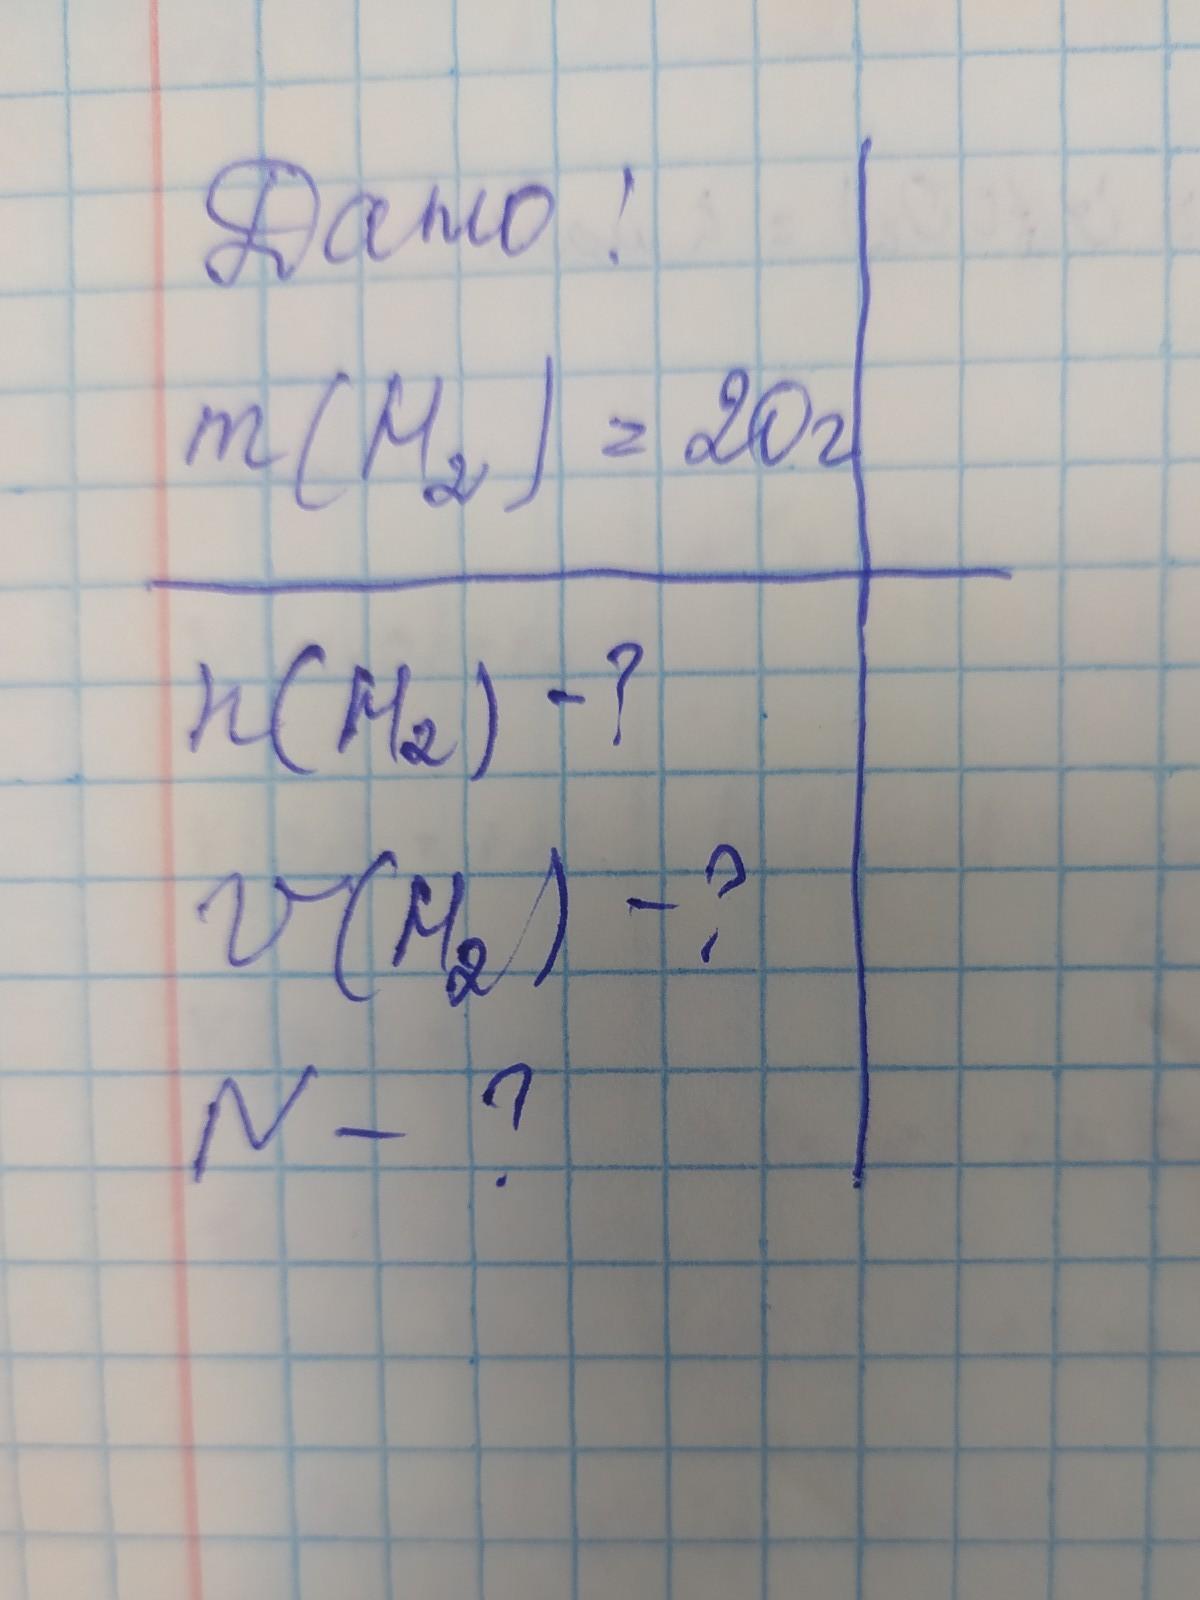 Дано:
m(H₂) = 20г
n(H₂) - ?
V(H₂) - ?
N - ?